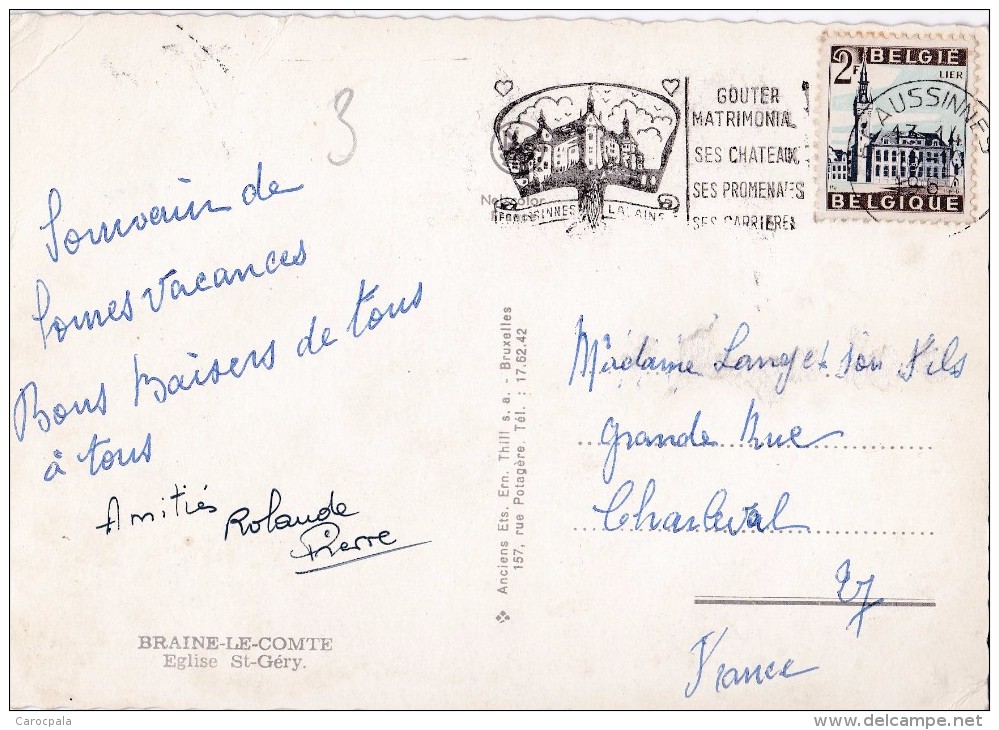 3
Souvenir de
bonnes Vacances
Bons Baisers de tous
à tous
Amitiés Rolande
Pierre
BRAINE-LE-COMTE
Eglise St-Géry.
Anciens Ets. Ern. Thill s. a. - Bruxelles
157, rue Potagère. Tél. : 17.62.42
LALAING
GOUTER
MATRIMONIAL
SES CHATEAUX
SES PROMENADES
SES CARRIERES
BELGIË
2F
LIER
BELGIQUE
AUSSINNES
Madame Lange & Son Fils
Grande Rue
Charleval
27
France
Carocpala
delcampe.net